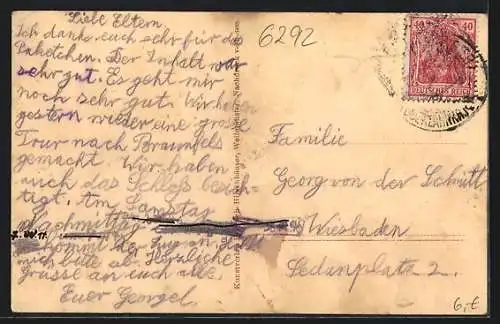 Liebe Eltern.
Ich danke euch sehr für das
Paketchen. Der Inhalt war
sehr gut. Es geht mir
noch sehr gut. Wir haben
gestern wieder eine grosse
Tour nach Braunfels
gemacht. Wir haben
auch das Schloß besich-
tigt. Am Samstag
Nachmittag
kommt der Zug an
mich bitte ab. Herzliche
Grüsse an euch alle.
Euer Georgel.
6292
40 40
DEUTSCHES REICH
Familie
Georg von der Schmitt
Wiesbaden
Sedanplatz 2.
6,-€